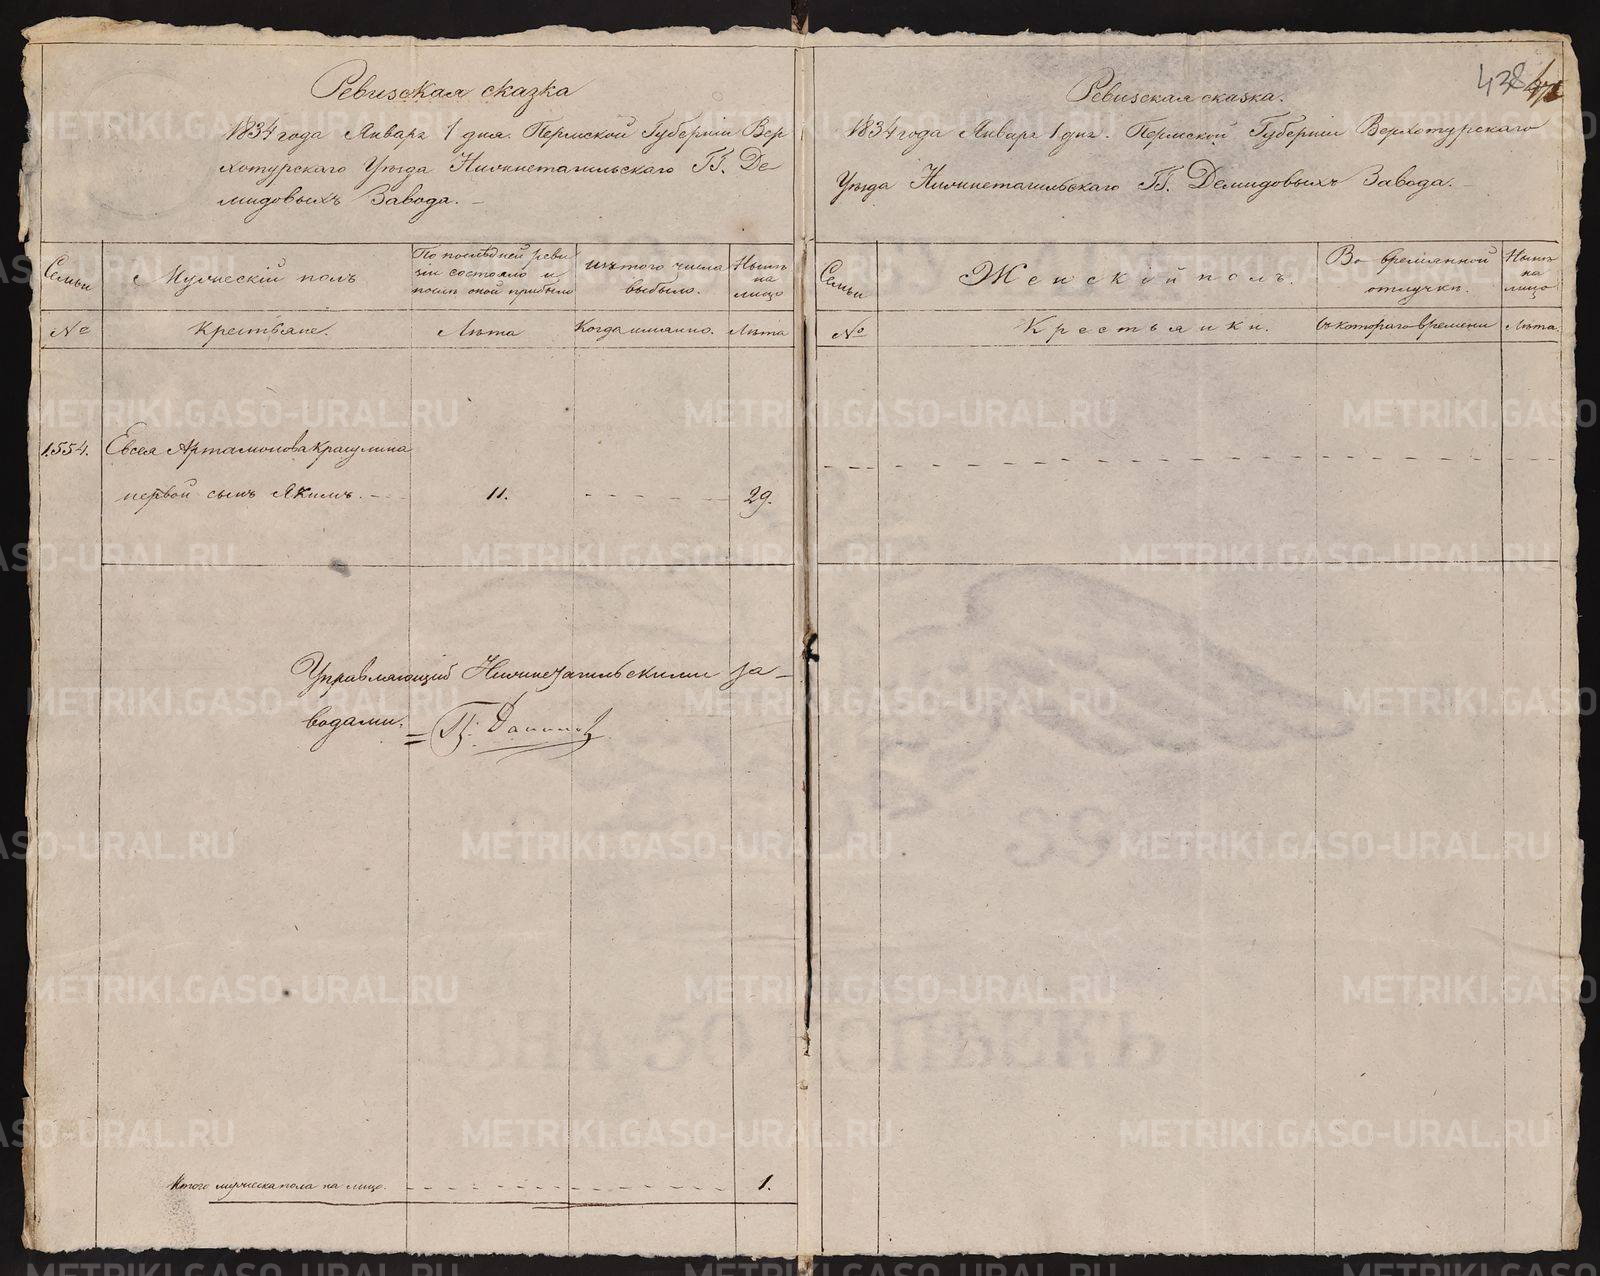 Ревизская сказка
1834 года Января 1 дня. Пермской Губерніи Вер
хотурскаго Уѣзда Нижнетагильскаго ГГ. Де
мидовыхъ Завода. —
Семьи
Мужескій полъ
По послѣдней реви
зіи состояло и
послѣ оной прибыло
изъ того числа
выбыло.
Нынѣ
на
лицо
№
Крестьяне.
Лѣта
Когда имянно.
Лѣта
1554. Евсея Артамонова Крашулина
первой сынъ Якимъ. 11. 29.
Управляющій Нижнетагильскими за-
водами.
Итого мужеска пола на лицо. 1.
438
Ревизская сказка.
1834 года Января 1 дня. Пермской Губерніи Верхотурскаго
Уѣзда Нижнетагильскаго ГГ. Демидовыхъ Завода. —
Семьи
Женскій полъ.
Во времянной
отлучкѣ.
Нынѣ
на
лицо
№
Крестьянки.
Съ котораго времени
Лѣта.
METRIKI.GASO-URAL.RU